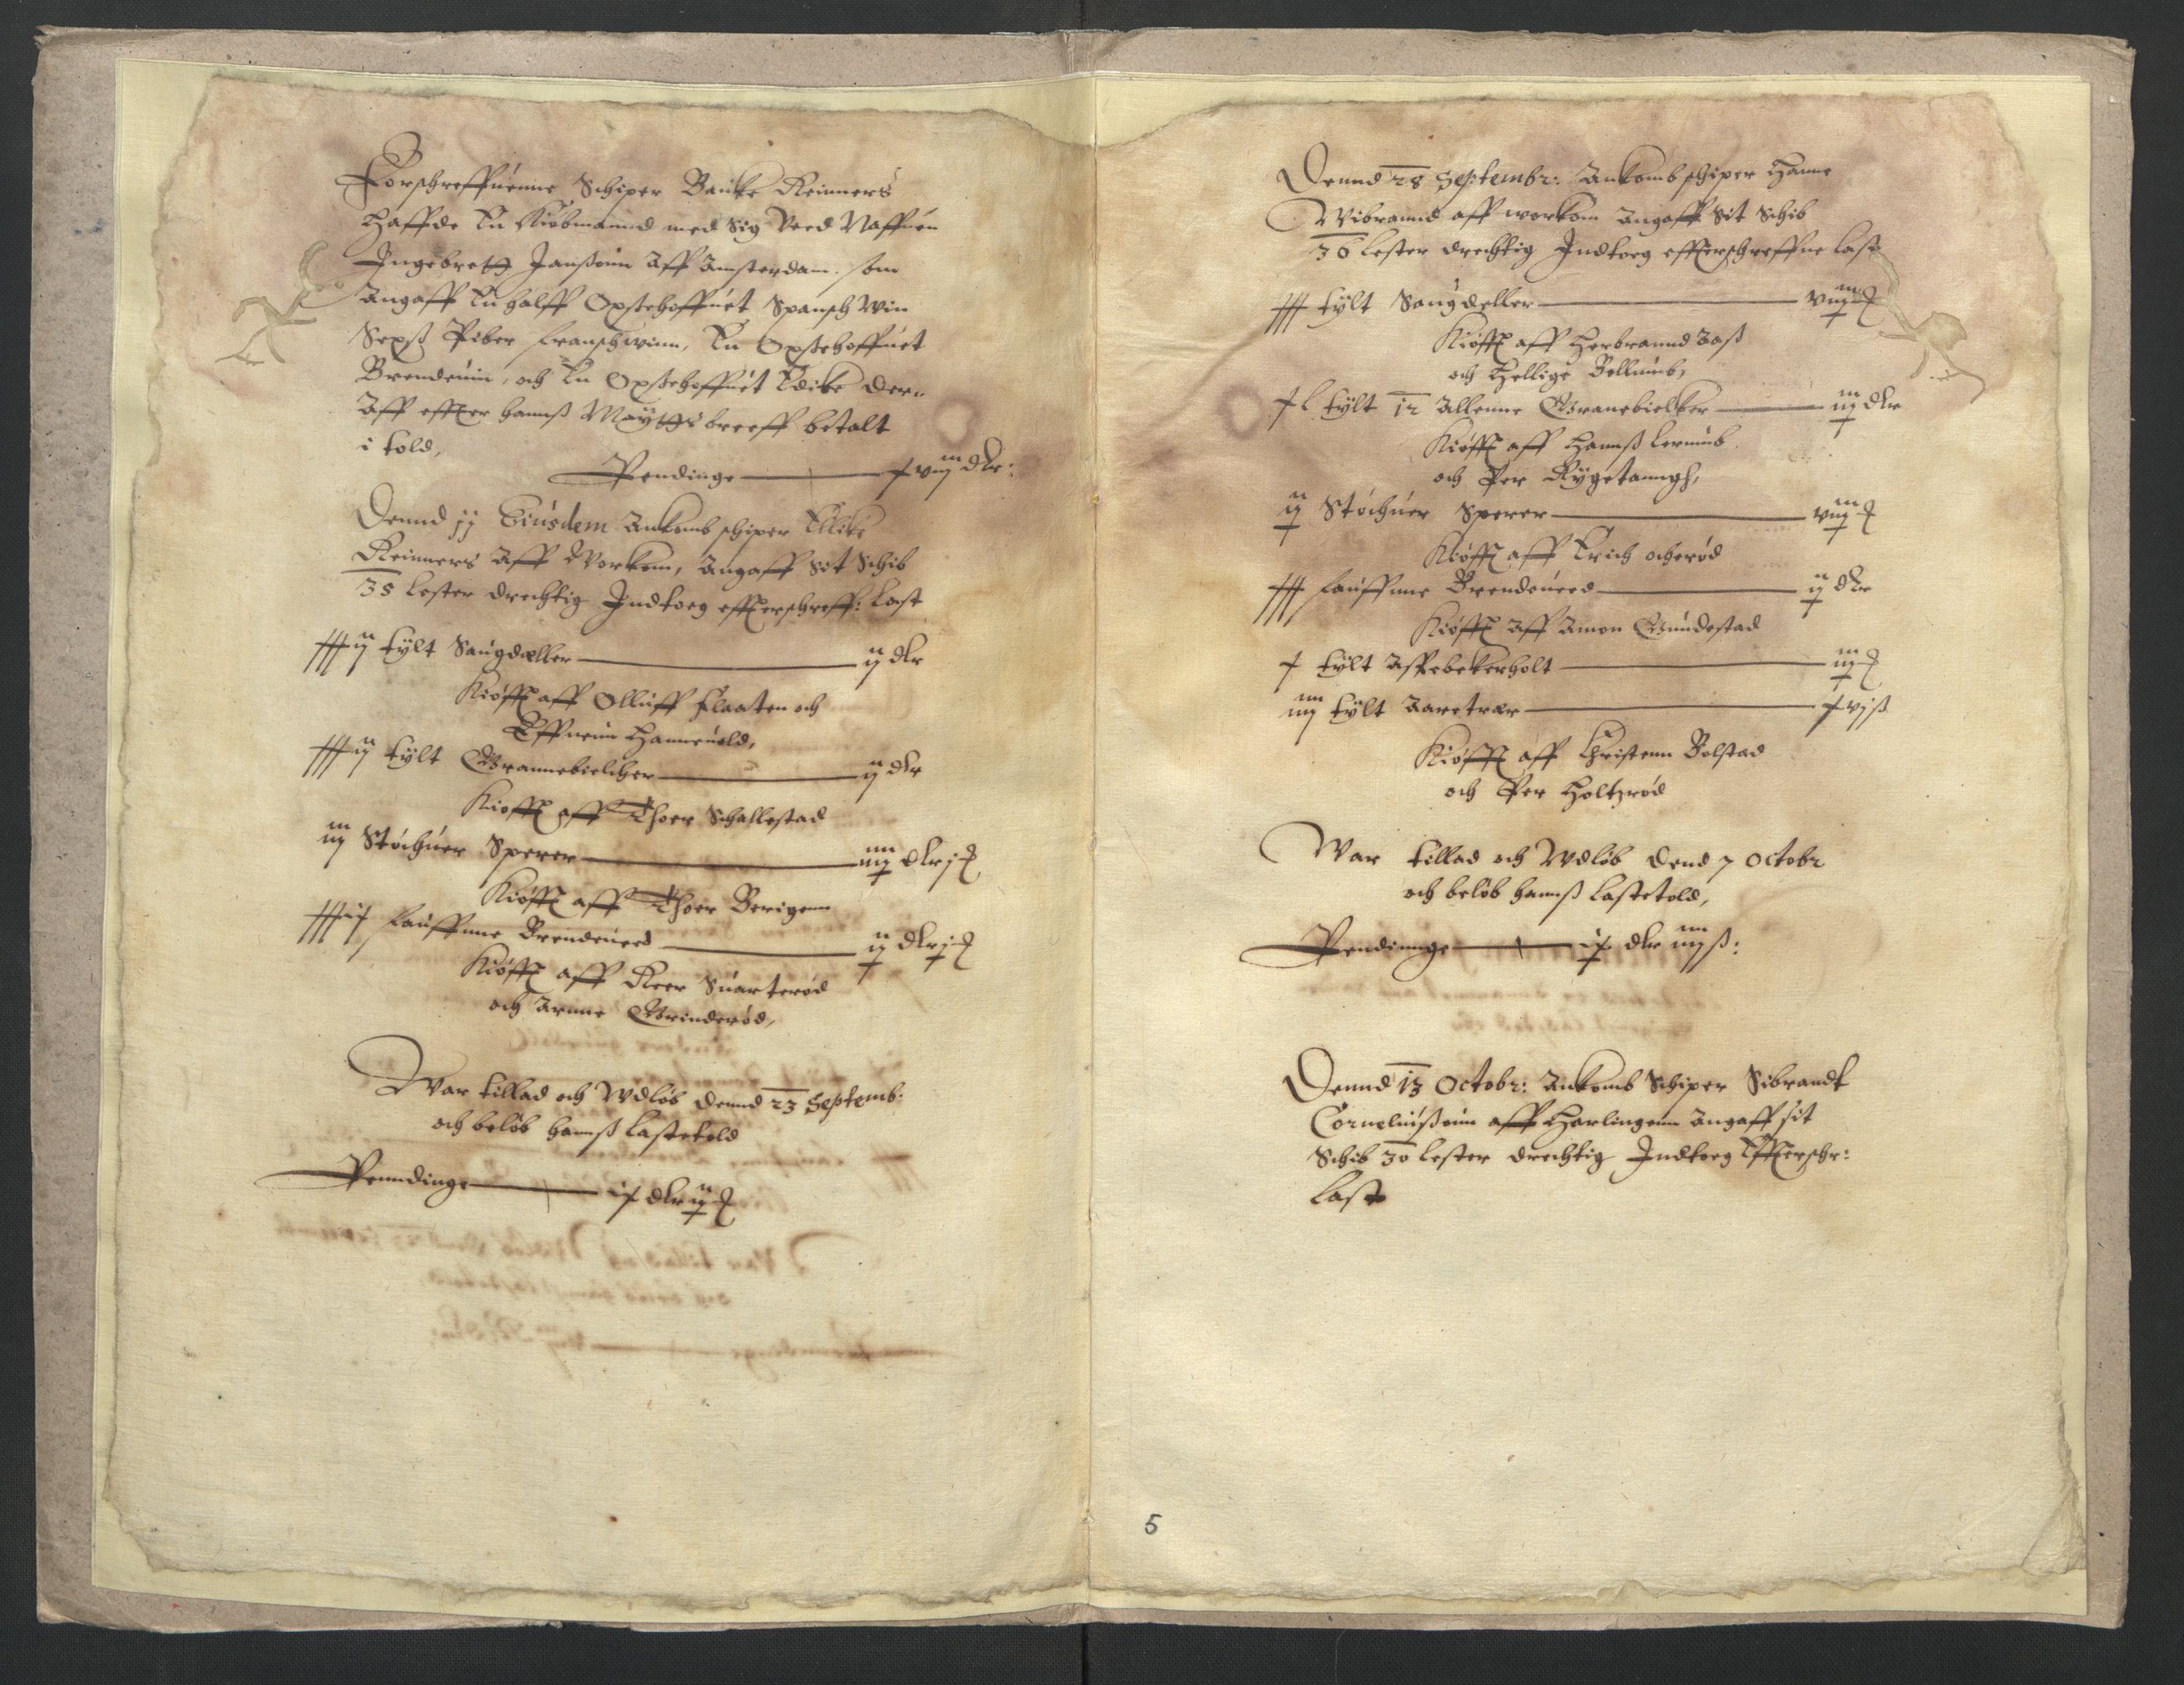 Forschreffuenne Schiper Bauke Reinners
Haffde En Kiøbmannd med Sig Veed Naffuen
Ingebreth Janßenn Aff Amsterdam. som
Angaff En halff Oxsehoffuet Spansch Win
Sexß Piber franschwinn, En Oxsehoffuet
Brendeuin, och En Oxsehoffuet Edike Der¬
Aff effter hannß Maytts breeff betalt
i told,
Pendinge — xviij dlr:
Dennd jj Eiusdem Ankomb schiper Ellike
Reinners Aff Workom, Angaff sit Schib
38 lester drechtig Indtoeg effterschreff: Last
xxxij tylt Saugdeller — ij dlr
Kiøfft aff Olluff flaaten och
Effuenn Hanneuold,
xxxij tylt Grannebielcker — ij dlr
Kiøfft aff Thoer Schallestad
iij Støchuer Sperer — iiij dlr j
Kiøfft aff Thoer Bergenn
Fauffnne Brendeueed — ij dlr j
Kiøfft aff Reer Suarterød
och Arnne Grinderød,
War tillad och Wdløb dennd 23 Septemb:
och beløb hannß lastetold
Penndinge — ix dlr ij
Dennd 28 Septembr: Ankomb schiper Hanne
Wibrannd aff workom Angaff sit Schib
36 lester drechtig Indtoeg effterschreffne last
xxx tylt Saugdeller — viij
Kiøfft aff Herbrannd Aaß
och Hellige Bellumb,
xl tylt 12 Allenne Granebielker — iij dlr
Kiøfft aff Hannß lerumb
och Per Rygetanngh,
ij Støchuer Sperer — viij
Kiøfft aff Erich ocherød
xxx fauffnne Brendeueed — ij dlr
Kiøfft Aff Amon Gundestad
x tylt Affebekerholt — iij
iiij tylt Aaretrær — xvj ß
Kiøfft aff Christenn Bolstad
och Per Holtzrød
War tillad och Wdløb Dend 7 Octobr
och beløb hannß lastetold,
Pendinnge — ix dlr iiij ß:
Dennd 13 Octobr: Ankomb Schiper Sibrandt
Corneliußenn aff Harlingenn Angaff sit
Schib 30 lester drechtig Indtoeg Effterschr:
Last
5